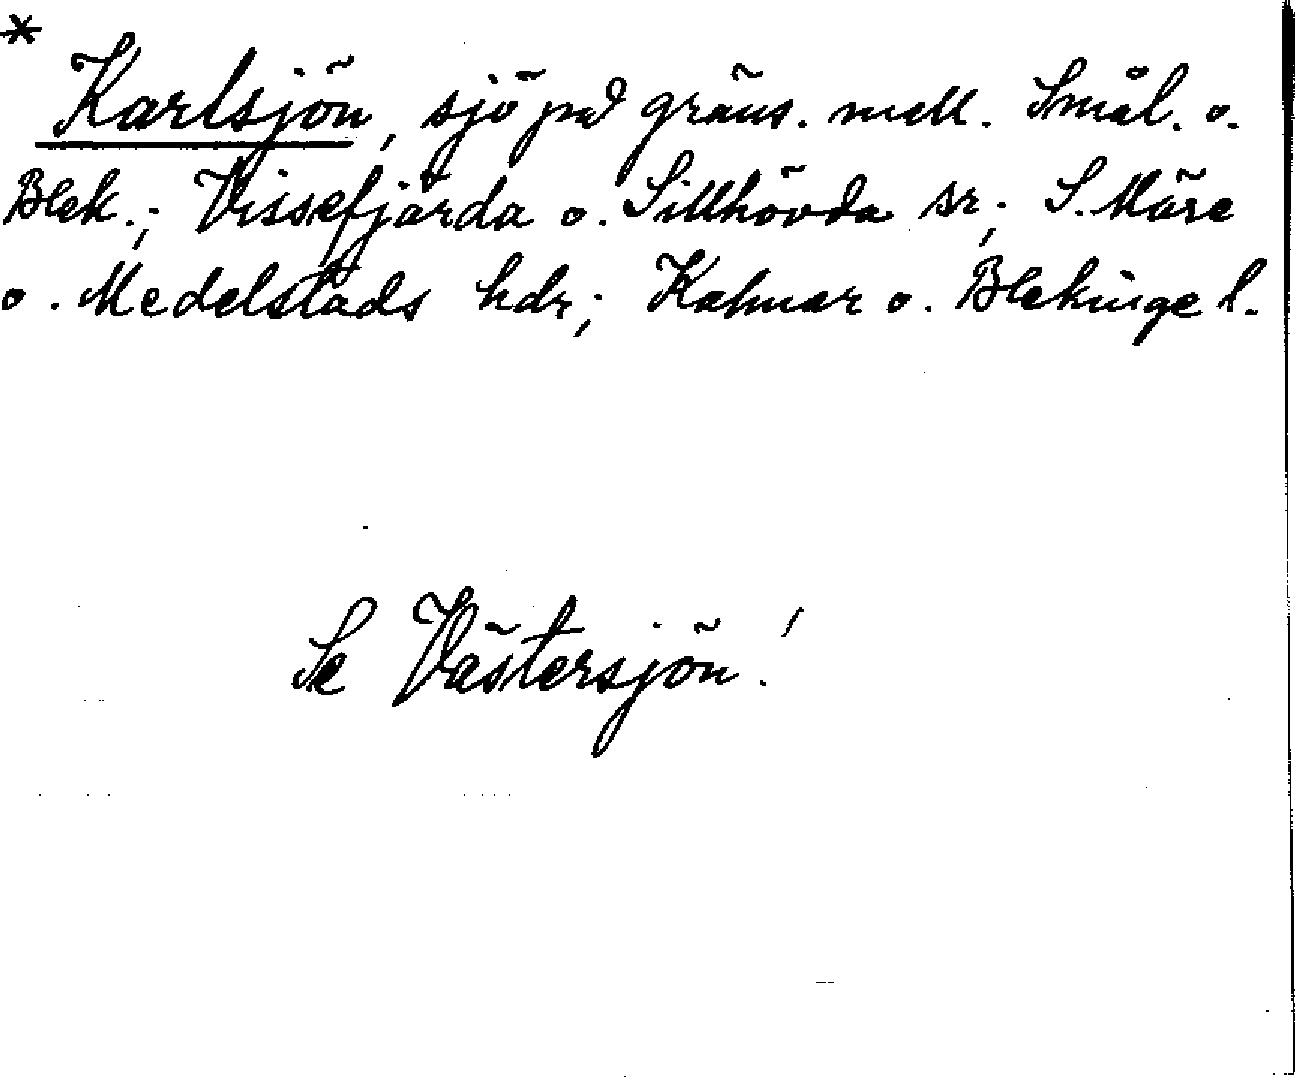 *
Karlsjön, sjö på gräns. mell. Smål. o.
Blek.; Vissefjärda o. Sillhövda sr; S. Möre
o. Medelstads hdr; Kalmar o. Blekinge l.
Se Västersjön!